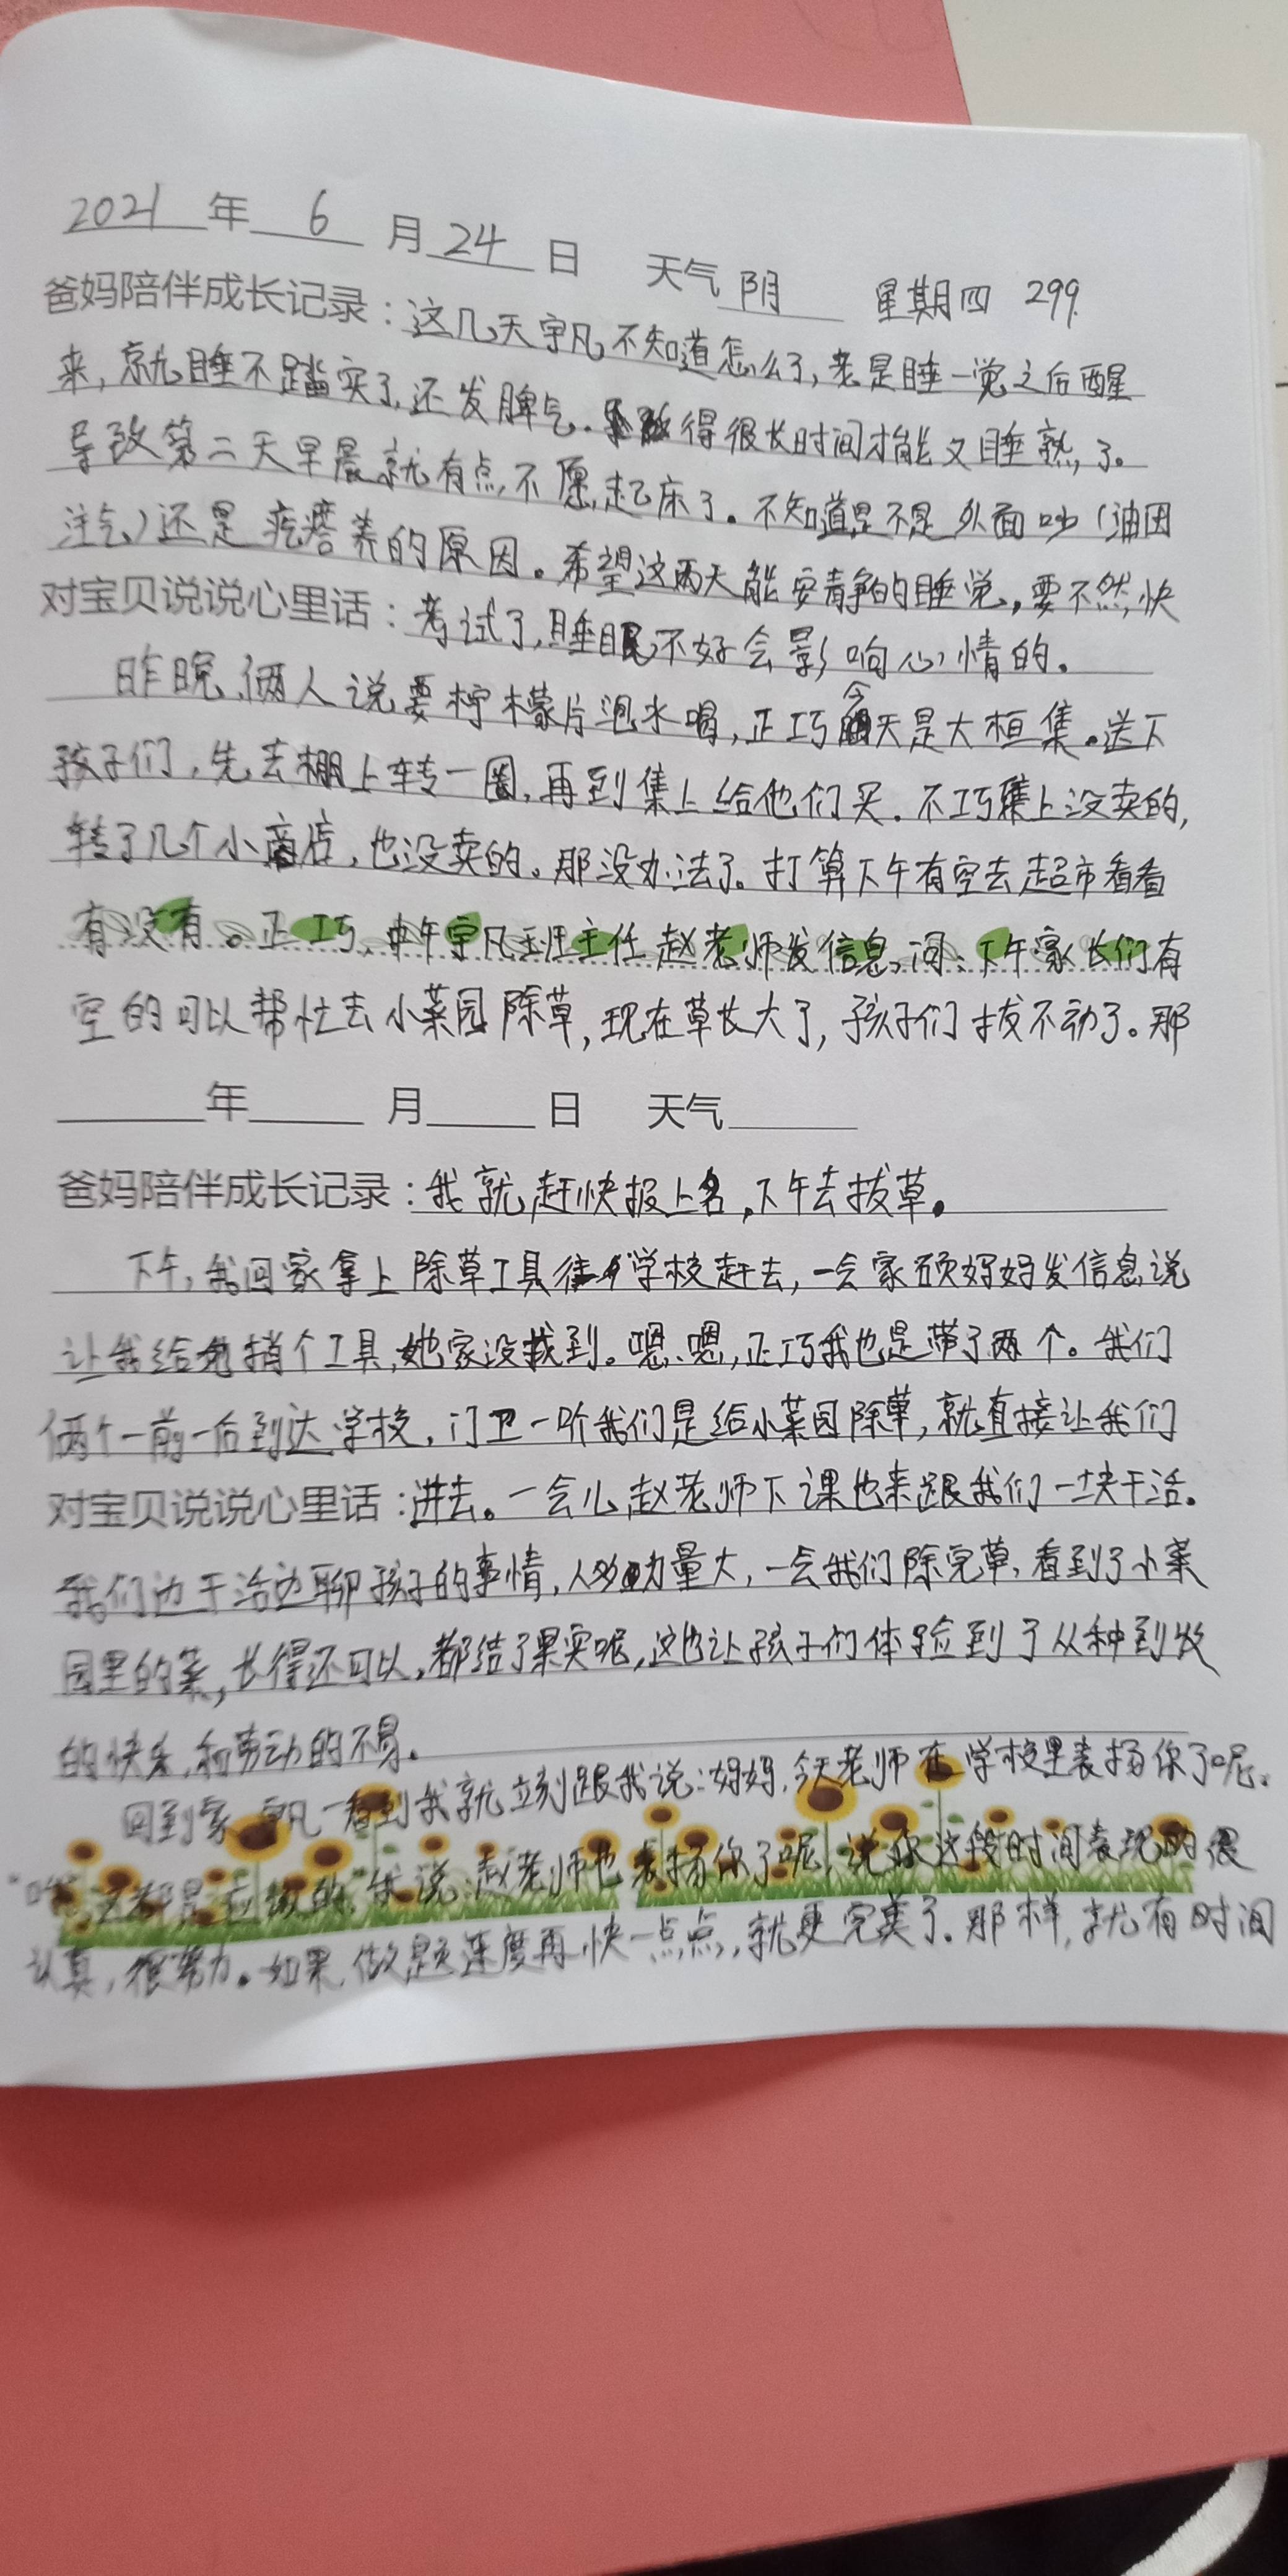 2021 年 6 月 24 日 天气 阴 星期四 299.
爸妈陪伴成长记录：这几天宇凡不知道怎么了，老是睡一觉之后醒
来，就睡不踏实了，还发脾气。得很长时间才能又睡熟了。
导致第二天早晨就有点不愿起床了。不知道是不是外面吵（油田
注气）还是疙瘩养的原因。希望这两天能安静的睡觉，要不然，快
对宝贝说说心里话：考试了，睡眠不好会影响心情的。
昨晚，俩人说要柠檬片泡水喝，正巧今天是大桓集。送下
孩子们，先去棚上转一圈，再到集上给他们买。不巧集上没卖的，
转了几个小商店，也没卖的。那没办法了。打算下午有空去超市看看
有没有。正巧，中午宇凡班主任赵老师发信息，问：下午家长们有
空的可以帮忙去小菜园除草，现在草长大了，孩子们拔不动了。那
年 月 日 天气
爸妈陪伴成长记录：我就赶快报上名，下午去拔草。
下午，我回家拿上除草工具往学校赶去，一会家硕妈妈发信息说
让我给她捎个工具，她家没找到。嗯、嗯，正巧我也是带了两个。我们
俩个一前一后到达学校，门卫一听我们是给小菜园除草，就直接让我们
对宝贝说说心里话：进去。一会儿赵老师下课也来跟我们一块干活。
我们边干活边聊孩子的事情，人多力量大，一会我们除完草，看到了小菜
园里的菜，长得还可以，都结了果实呢，这也让孩子们体验到了从种到收
的快乐，和劳动的不易。
回到家，宇凡一看到我就立刻跟我说：妈妈，今天老师在学校里表扬你了呢。
这都是应做的”我说：赵老师也表扬你了呢，说你这段时间表现的很
认真，很努力。如果，做题速度再快一点点，就更完美了。那样，就有时间